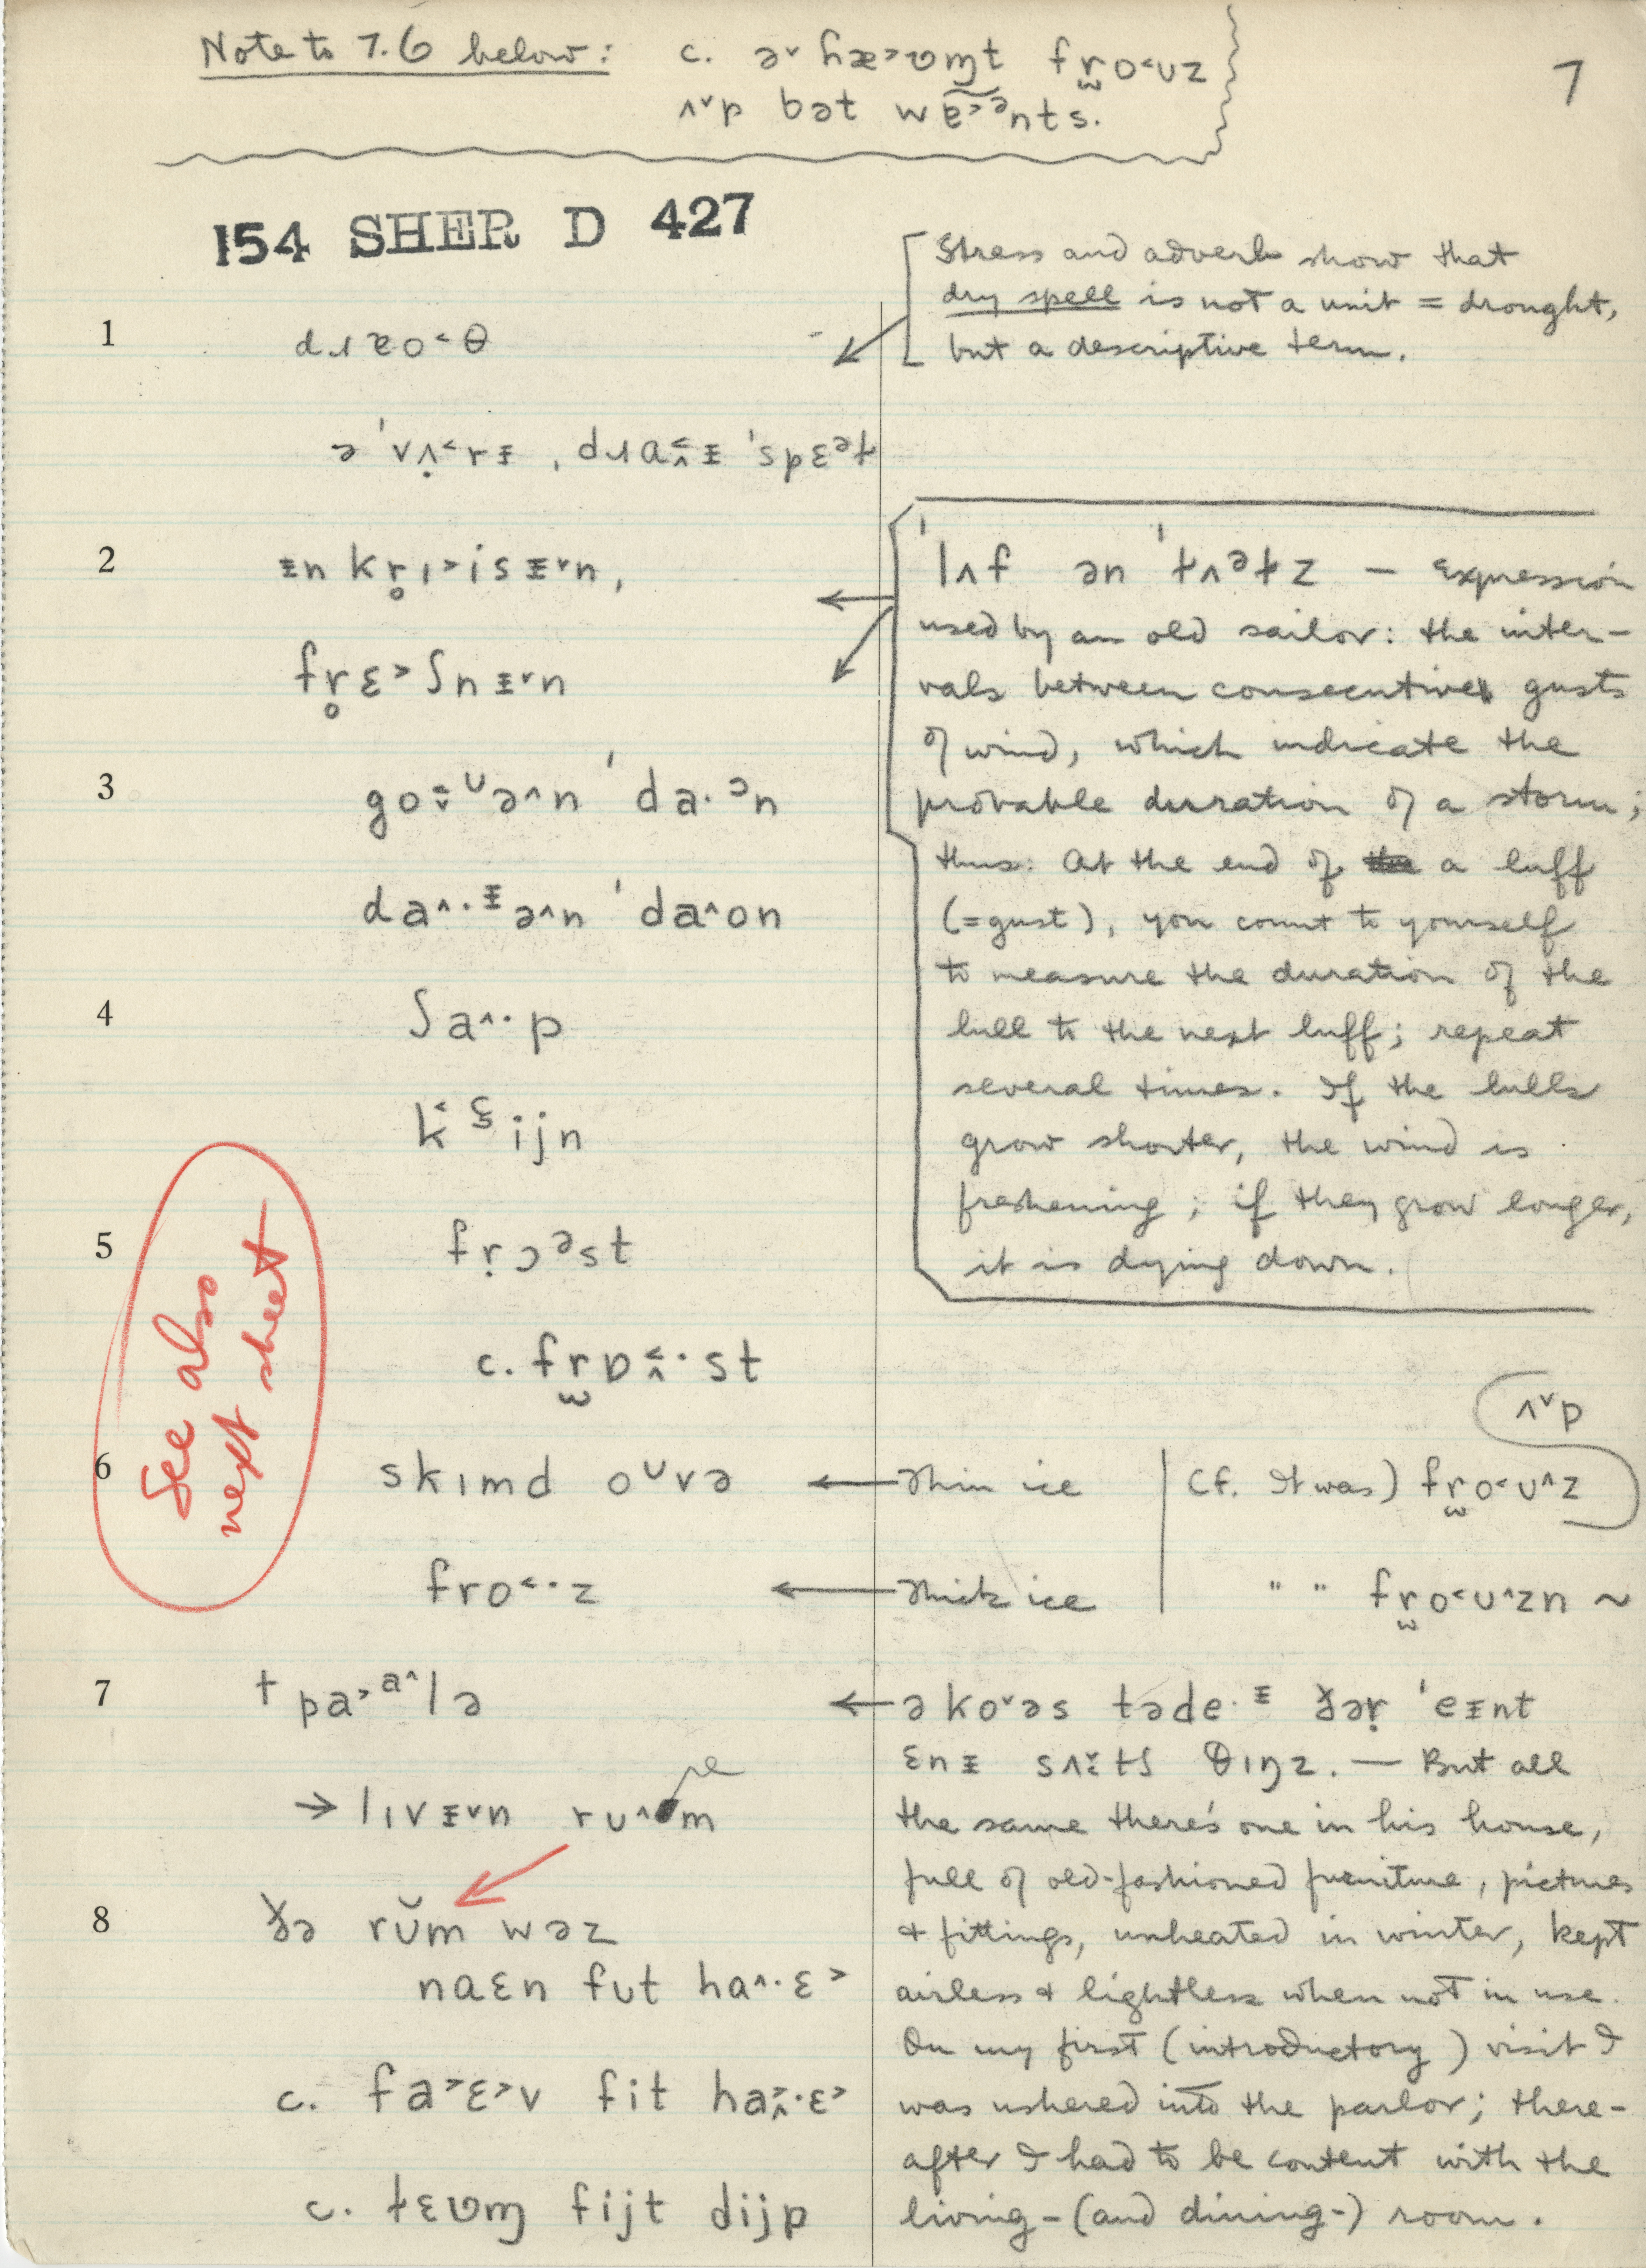 Note to 7.6 below: c. ə˅ hæ˃ʊɱt fr̫o˂ʊz
ʌ˅p bət wɐ̃˃ᵊnts.
7
154 SHER D 427
Stress and adverb show that
dry spell is not a unit = drought,
but a descriptive term.
1
ə ˈvʌ̣˂rᵻ ,
2
ᵻn kr̥ɪ˃isᵻ˅n,
fr̥ɛ˃ʃnᵻ˅n
ˈlʌf ən ˈɫʌᵊɫz — expression
used by an old sailor: the inter-
vals between consecutive gusts
of wind, which indicate the
probable duration of a storm;
thus: At the end of a luff
(=gust), you count to yourself
to measure the duration of the
lull to the next luff; repeat
several times. If the lulls
grow shorter, the wind is
freshening; if they grow longer,
it is dying down.
3
ə˄n ˈda·ᵊn
da˄·ᵻə˄n ˈda˄on
4
ʃa˄·p
ijn
5
fṛɔᵊst
c. fr̫ɒ·st
See also
next sheet
6
skɪmd oᶷvə ← thin ice | (cf. It was) fr̫o˂ʊ˄z ʌ˅p
fro˂·z ← thick ice | " " fr̫o˂ʊ˄zn ~
7
† pa˃ᵃ˄lə ← ə ko˅əs təde·ᵻ ðəṛ ˈeᵻnt
ɛnᵻ θɪŋz. — But all
→ lɪvᵻ˅n rʊ˄m
the same there's one in his house,
full of old-fashioned furniture, pictures
8
ðə rŭm wəz
& fittings, unheated in winter, kept
naɛn fʊt ha˄·ɛ˃
airless & lightless when not in use.
On my first (introductory) visit I
c. fa˃ɛ˃v fit ha·ɛ˃
was ushered into the parlor; there-
after I had to be content with the
c. ɫɛʊɱ fijt dijp
living-(and dining-) room.